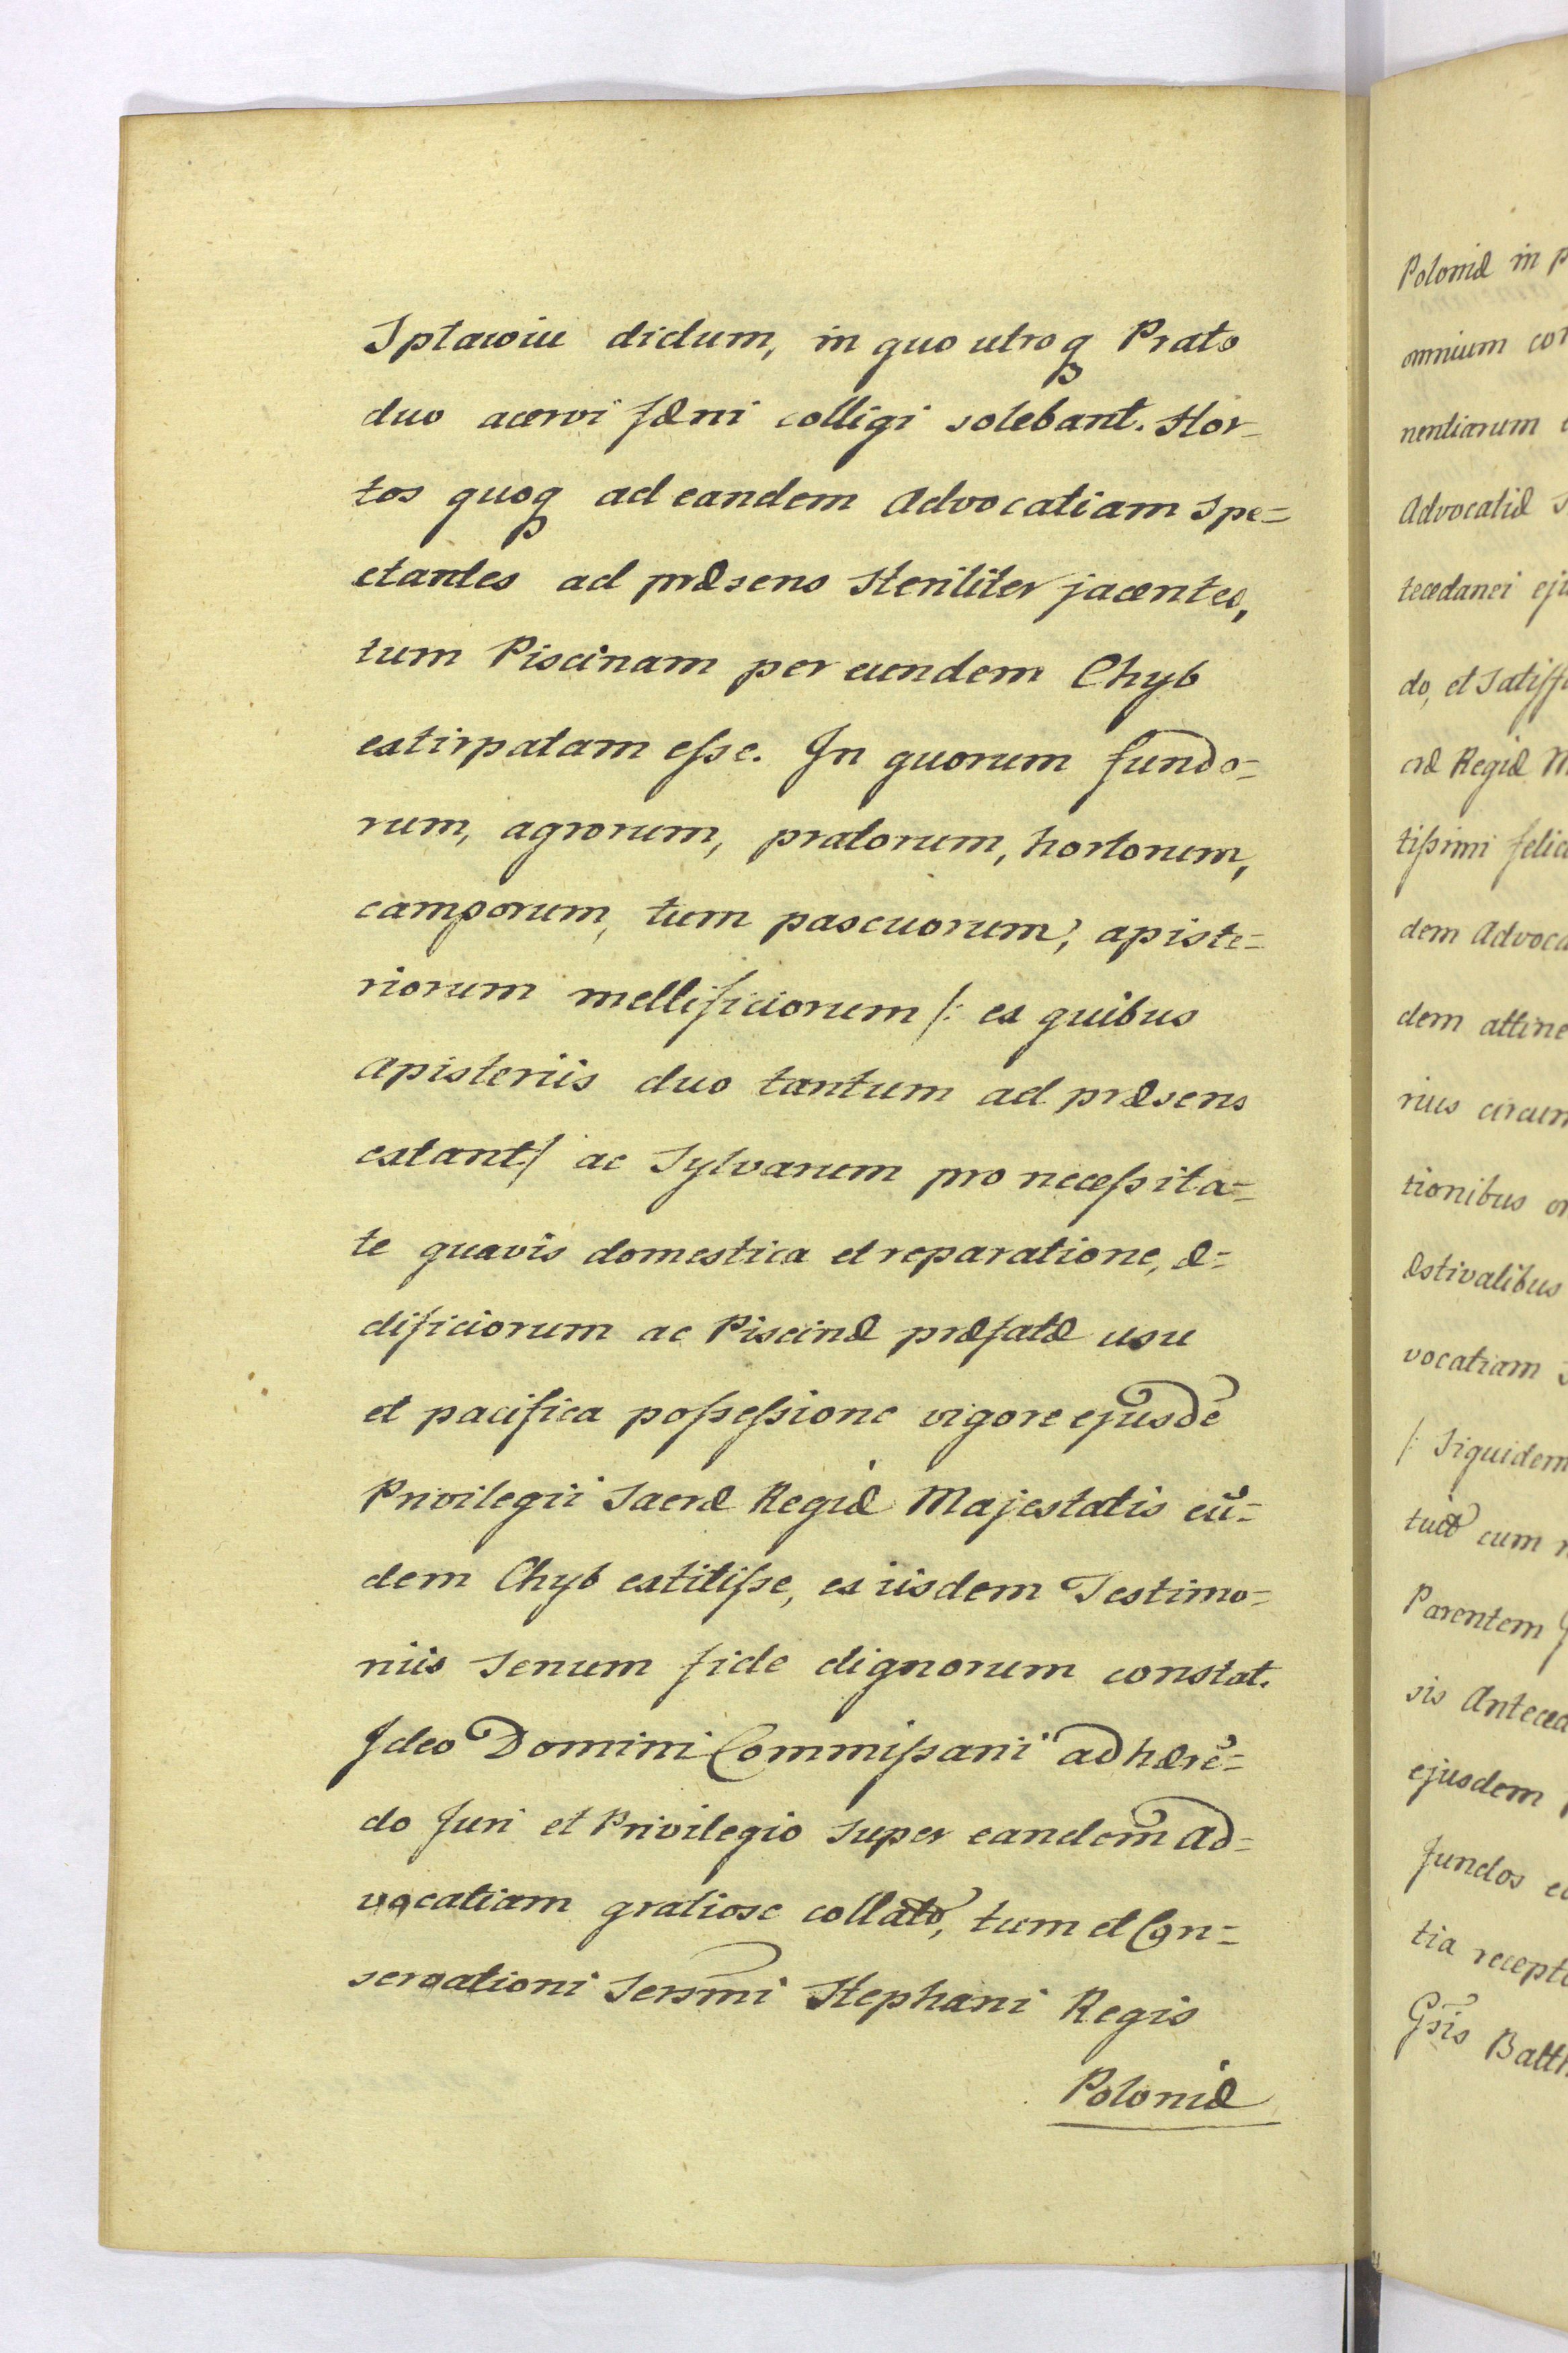 Splawiu dictum, in quo utroq Prato
duo acervi fæni colligi solebant. Hor-
tos quoq ad eandem Advocatiam Spe=
ctantes ad præsens Steriliter jacentes,
tum Piscinam per eundem Chyb
extirpatam eſse. In quorum fundo=
rum, agrorum, pratorum, hortorum,
camporum, tum pascuorum, apiste=
riorum mellificiorum /: ex quibus
Apisteriis duo tantum ad præsens
extant/ ac Sylvarum pro neceſsita=
te quavis domestica et reparatione, æ=
dificiorum ac Piscinæ præfatæ usu
et pacifica poſseſsione vigore ejusdē
Privilegii Sacræ Regiæ Majestatis eū=
dem Chyb extitiſse, ex iisdem Testimo=
niis Senum fide dignorum constat.
Ideo Domini Commiſsarii adhærē=
do Juri et Privilegio Super eandem Ad=
vocatiam gratiose collato, tum et Con=
servationi Sersmi Stephani Regis
Poloniæ
Poloniæ in p
omnium con
nentiarum
Advocatiæ S
tecedanei eju
do, et Satiſf
cræ Regiæ M
tiſsimi felic
dem Advoca
dem attine
rius circum
tionibus o
æstivalibus
vocatiam
/: Siquidem
cum
Parentem
sis Anteced
ejusdem
fundos
tia recept
Gsis Balth